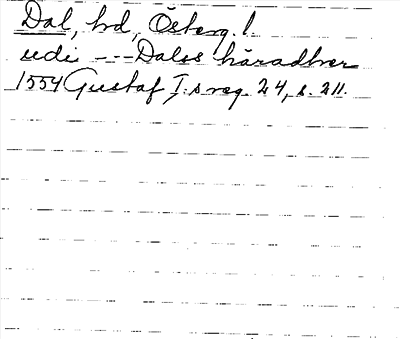 Dal, hd, Österg. l.
udi --- Dalss häradher
1554 Gustaf I:s reg. 24, s. 211.